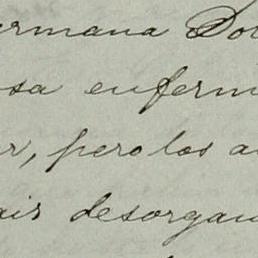 ermana Do
sa enferm
r, pero los a
ais desorgan